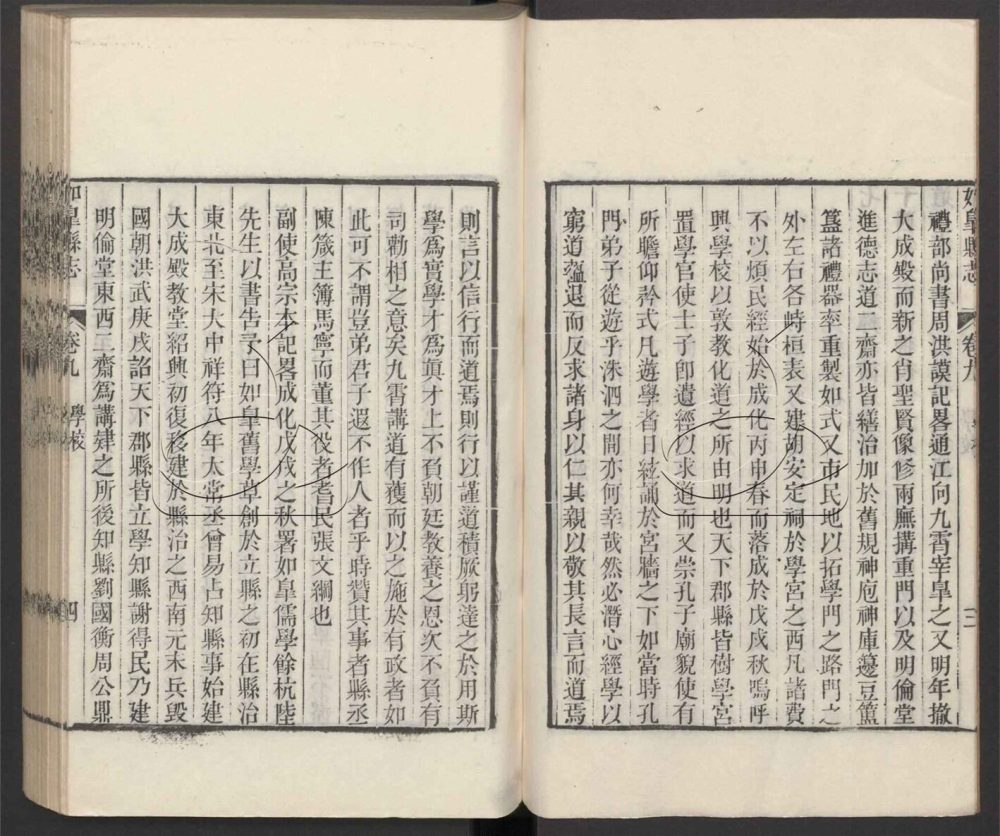 如皋縣志　卷九　學校　三
禮部尚書周洪謨記畧通江向九霄宰皋之又明年撤
大成殿而新之肖聖賢像修兩廡搆重門以及明倫堂
進德志道二齋亦皆繕治加於舊規神庖神庫籩豆簠
簋諸禮器率重製如式又市民地以拓學門之路門之
外左右各峙桓表又建胡安定祠於學宮之西凡諸費
不以煩民經始於成化丙申春而落成於戊戌秋嗚呼
興學校以敦教化道之所由明也天下郡縣皆樹學宮
置學官使士子卽遺經以求道而又崇孔子廟貌使有
所瞻仰矜式凡遊學者日絃誦於宮牆之下如當時孔
門弟子從遊乎洙泗之間亦何幸哉然必潛心經學以
窮道蘊退而反求諸身以仁其親以敬其長言而道焉
則言以信行而道焉則行以謹道積厥躬達之於用斯
學爲實學才爲眞才上不負朝廷教養之恩次不負有
司勸相之意矣九霄講道有獲而以之施於有政者如
此可不謂豈弟君子遐不作人者乎時贊其事者縣丞
陳箴主簿馬寧而董其役者耆民張文綱也
副使高宗本記畧成化戊戌之秋署如皋儒學餘杭陸
先生以書告予曰如皋舊學草創於立縣之初在縣治
東北至宋大中祥符八年太常丞曾易占知縣事始建
大成殿教堂紹興初復移建於縣治之西南元末兵毀
國朝洪武庚戌詔天下郡縣皆立學知縣謝得民乃建
明倫堂東西二齋爲講肄之所後知縣劉國衡周公鼎
如皋縣志　卷九　學校　四